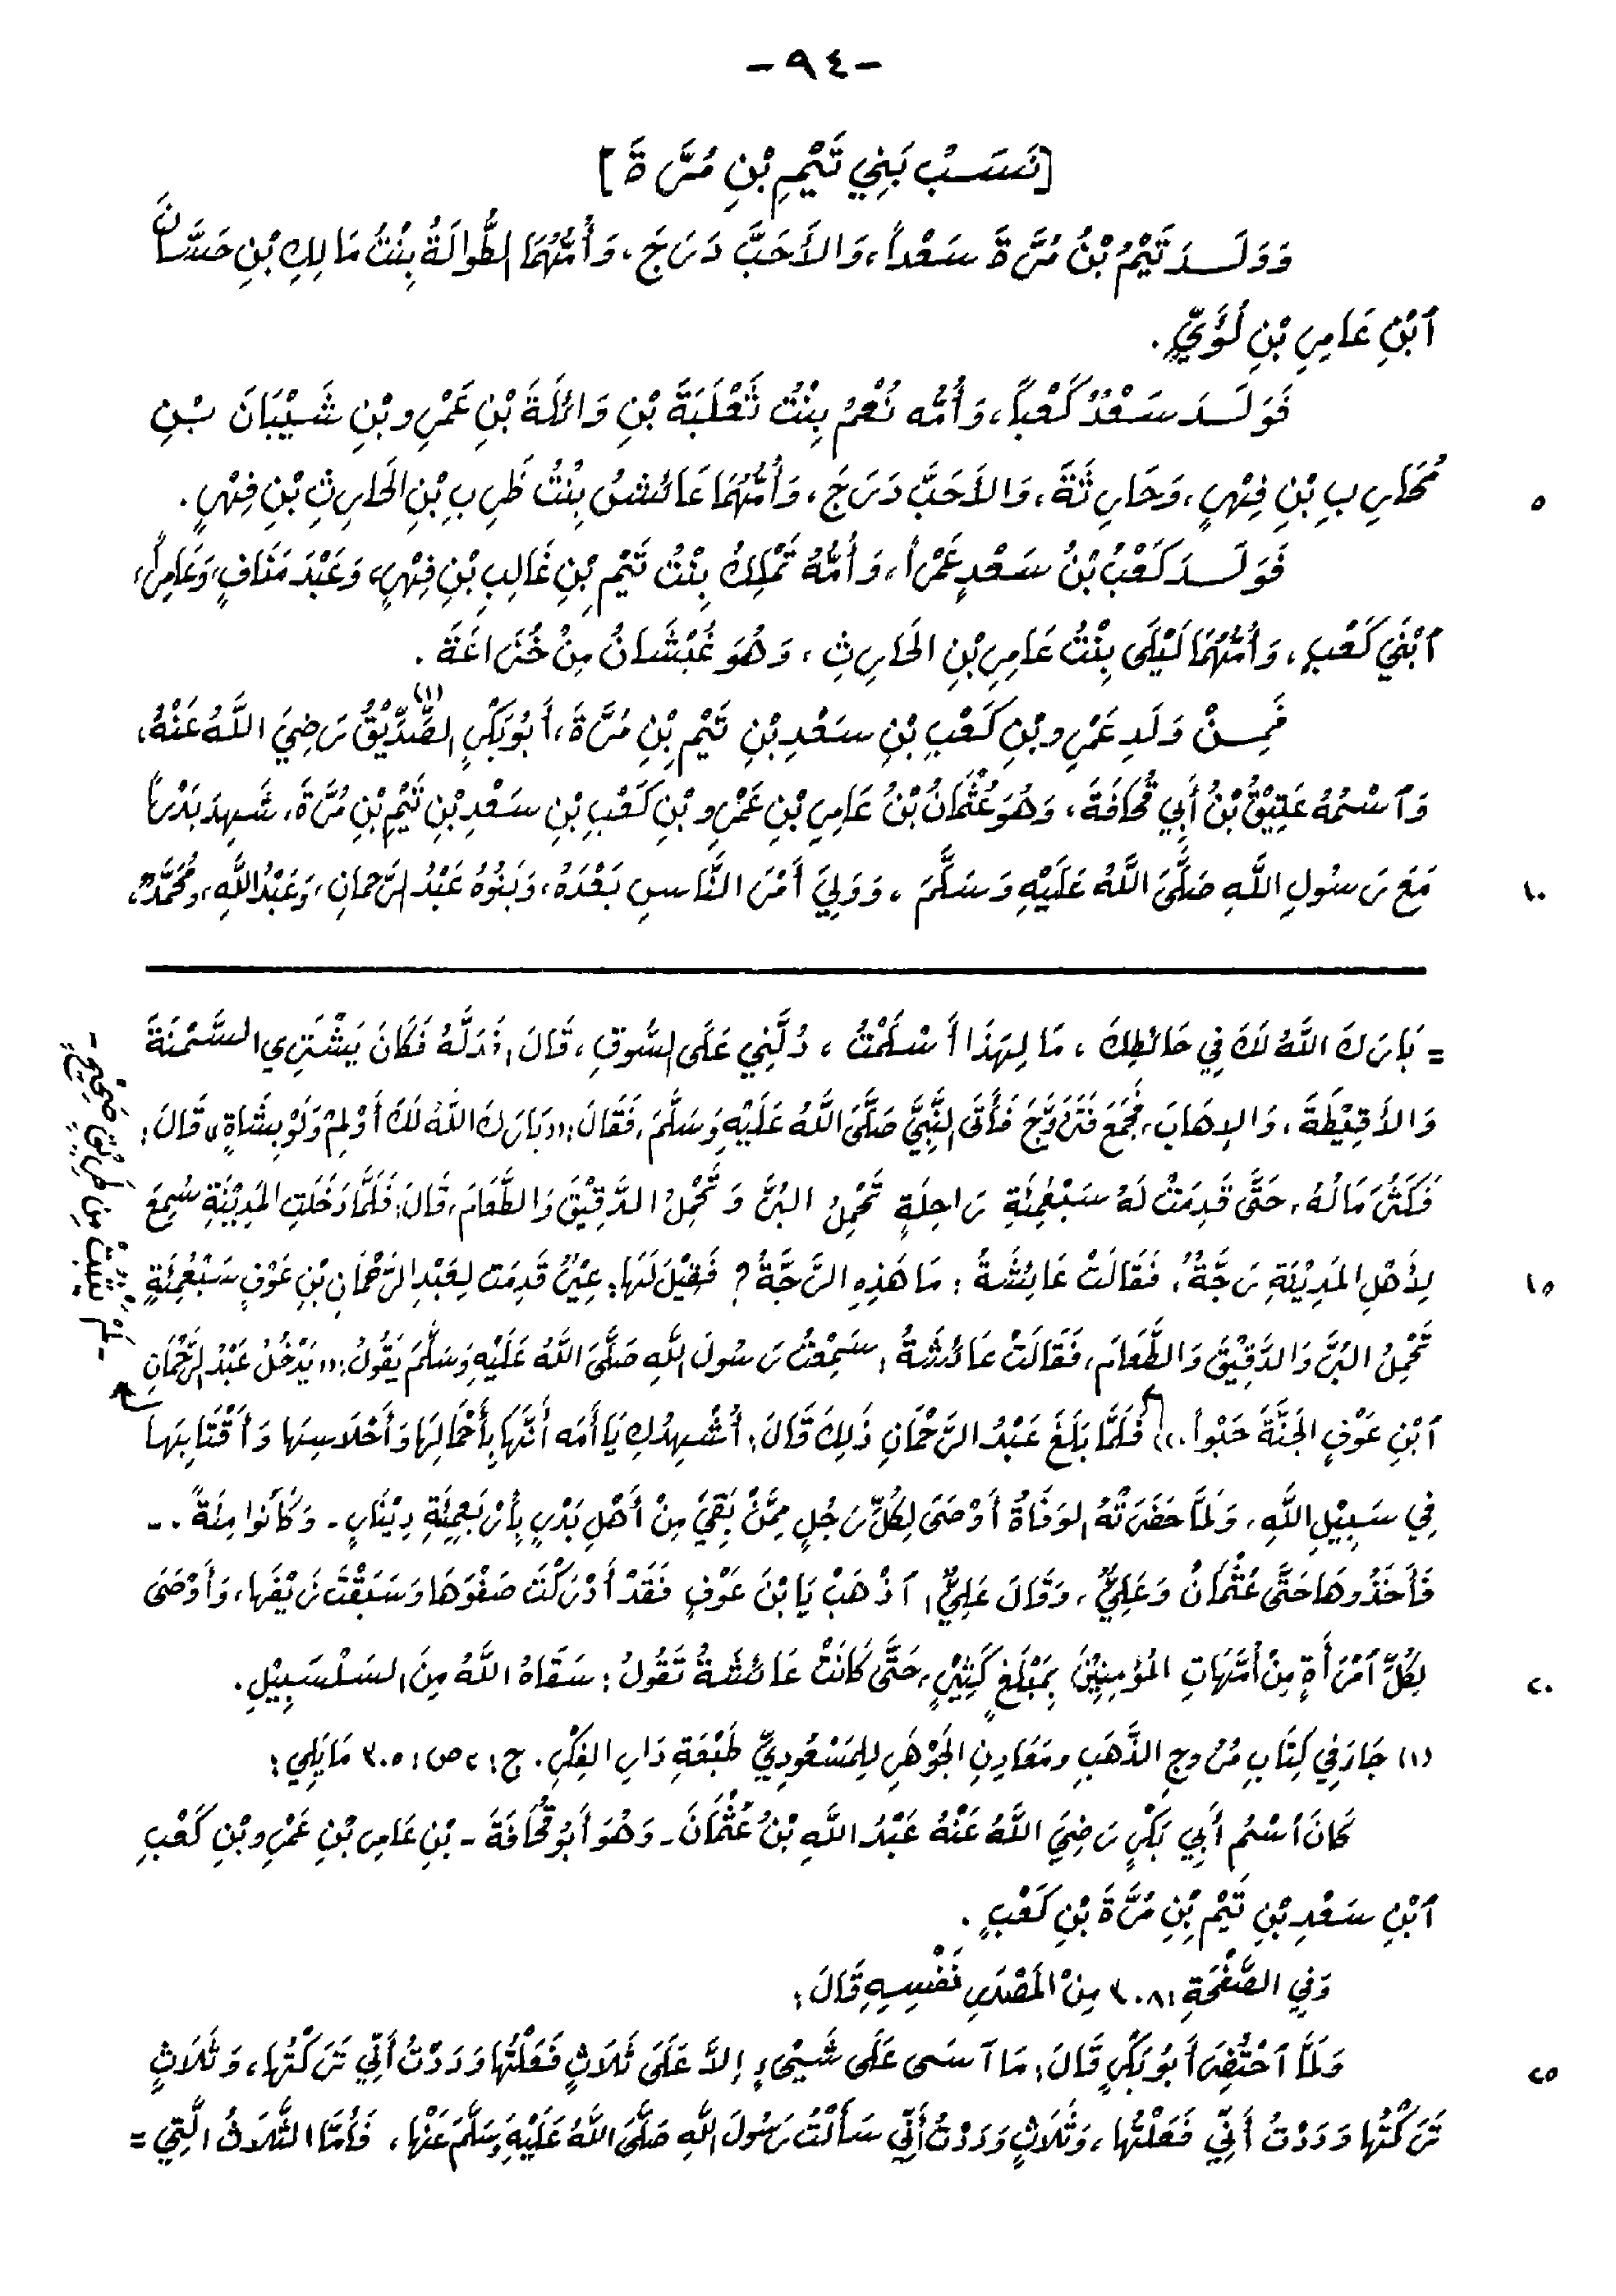 -٩٤-
[نَسَبُ بَنِي تَيْمِ بْنِ مُرَّةَ]
وَوَلَدَ تَيْمُ بْنُ مُرَّةَ سَعْداً، وَالأَحَبَّ دَرَجَ، وَأُمُّهُمَا الطُّوالَةُ بِنْتُ مَالِكِ بْنِ حَسَّانَ
ٱبْنِ عَامِرِ بْنِ لُؤَيٍّ.
فَوَلَدَ سَعْدُ كَعْباً، وَأُمُّه نُعْمُ بِنْتُ ثَعْلَبَةَ بْنِ وَائِلَةَ بْنِ عَمْرِو بْنِ شَيْبَانَ بْنِ
مُحَارِبِ بْنِ فِهْرٍ، وَحَارِثَةَ، وَالأَحَبَّ دَرَجَ، وَأُمُّهُمَا عَائِشُ بِنْتُ ظَرِبِ بْنِ الحَارِثِ بْنِ فِهْرٍ.
٥
فَوَلَدَ كَعْبُ بْنُ سَعْدٍ عَمْراً، وَأُمُّهُ تَمْلِكُ بِنْتُ تَيْمِ بْنِ غَالِبِ بْنِ فِهْرٍ، وَعَبْدَ مَنَافٍ، وَعَامِراً،
ٱبْنَي كَعْبٍ، وَأُمُّهُمَا لَيْلَى بِنْتُ عَامِرِ بْنِ الحَارِثِ، وَهُوَ غُبْشَانُ مِنْ خُزَاعَةَ.
فَمِنْ وَلَدِ عَمْرِو بْنِ كَعْبِ بْنِ سَعْدِ بْنِ تَيْمِ بْنِ مُرَّةَ، أَبُو بَكْرٍ الصِّدِّيْقُ (١) رَضِيَ اللَّهُ عَنْهُ،
وَٱسْمُهُ عَتِيْقُ بْنُ أَبِي قُحَافَةَ، وَهُوَ عُثْمَانُ بْنُ عَامِرِ بْنِ عَمْرِو بْنِ كَعْبِ بْنِ سَعْدِ بْنِ تَيْمِ بْنِ مُرَّةَ، شَهِدَ بَدْراً
مَعَ رَسُولِ اللَّهِ صَلَّى اللَّهُ عَلَيْهِ وَسَلَّمَ، وَوَلِيَ أَمْرَ النَّاسِ بَعْدَهُ، وَبَنُوهُ عَبْدُ الرَّحمَانِ، وَعَبْدُ اللَّهِ، وَمُحَمَّدٌ،
١٠
= بَارَكَ اللَّهُ لَكَ فِي حَائِطِكَ، مَا لِهَذَا أَسْلَمْتُ، دُلَّنِي عَلَى السُّوقِ، قَالَ: فَدَلَّهُ فَكَانَ يَشْتَرِي السَّمْنَةَ
وَالأَقِيْطَةَ، وَالإِهَابَ، فَجَمَعَ فَتَزَوَّجَ فَأَتَى النَّبِيَّ صَلَّى اللَّهُ عَلَيْهِ وَسَلَّمَ، فَقَالَ: «بَارَكَ اللَّهُ لَكَ أَوْلِمْ وَلَوْ بِشَاةٍ» قَالَ:
فَكَثُرَ مَالُهُ، حَتَّى قَدِمَتْ لَهُ سَبْعُمِئَةِ رَاحِلَةٍ تَحْمِلُ البُرَّ وَتَحْمِلُ الدَّقِيْقَ وَالطَّعَامَ، قَالَ: فَلَمَّا دَخَلَتِ المَدِيْنَةِ سُمِعَ
لِأَهْلِ المَدِيْنَةِ رَجَّةٌ، فَقَالَتْ عَائِشَةُ: مَا هَذِهِ الرَّجَّةُ؟ فَقِيْلَ لَهَا: عِيْرٌ قَدِمَت لِعَبْدِ الرَّحْمَانِ بْنِ عَوْفٍ سَبْعُمِئَةٍ
١٥
تَحْمِلُ البُرَّ وَالدَّقِيْقَ وَالطَّعَامَ، فَقَالَتْ عَائِشَةُ: سَمِعْتُ رَسُولَ اللَّهِ صَلَّى اللَّهُ عَلَيْهِ وَسَلَّمَ يَقُولُ: «يَدْخُلُ عَبْدُ الرَّحْمَانِ
ٱبْنِ عَوْفٍ الجَنَّةَ حَبْواً.» فَلَمَّا بَلَغَ عَبْدُ الرَّحْمَانِ ذَلِكَ قَالَ: أُشْهِدُكِ يَا أُمَه أَنَّهَا بِأَحْمَالِهَا وَأَحْلَاسِهَا وَأَقْتَابِهَا
- لَمْ يَثْبُتْ مِن طَرِيْقٍ صَحِيْحٍ -
فِي سَبِيْلِ اللَّهِ، وَلَمَّا حَضَرَتْهُ الوَفَاةُ أَوْصَى لِكُلِّ رَجُلٍ مِمَّنْ بَقِيَ مِنْ أَهْلِ بَدْرٍ بِأَرْبَعِمِئَةِ دِيْنَارٍ - وَكَانُوا مِئَةً. -
فَأَخَذُوهَا حَتَّى عُثْمَانُ وَعَلِيٌّ، وَقَالَ عَلِيٌّ: ٱذْهَبْ يَا بْنَ عَوْفٍ فَقَدْ أَدْرَكْتَ صَفْوَهَا وَسَبَقْتَ زَيْفَها، وَأَوْصَى
لِكُلِّ ٱمْرَأَةٍ مِنْ أُمَّهَاتِ المُؤْمِنِيْنَ بِمَبْلَغٍ كَثِيْرٍ، حَتَّى كَانَتْ عَائِشَةُ تَقُولُ: سَقَاهُ اللَّهُ مِنَ السَلْسَبِيْلِ.
٢٠
(١) جَاءَ فِي كِتَابِ مُرُوجِ الذَّهَبِ ومَعَادِنِ الجَوْهَرِ لِلمَسْعُودِيِّ طَبْعَةِ دَارِ الفِكْرِ. ج: ٢ ص: ٣٠٥ مَا يَلِي:
كَانَ ٱسْمُ أَبِي بَكْرٍ رَضِيَ اللَّهُ عَنْهُ عَبْدُ اللَّهِ بْنُ عُثْمَانَ - وَهُوَ أَبُو قُحَافَةَ - بْنِ عَامِرِ بْنِ عَمْرِو بْنِ كَعْبِ
ٱبْنِ سَعْدِ بْنِ تَيْمِ بْنِ مُرَّةَ بْنِ كَعْبٍ.
وَفِي الصَّفْحَةِ: ٣٠٨ مِنْ المَصْدَرِ نَفْسِهِ قَالَ:
وَلَمَّا ٱحْتُضِرَ أَبُو بَكْرٍ قَالَ: مَا آسَى عَلَى شَيْءٍ إِلاَّ عَلَى ثَلَاثٍ فَعَلْتُهَا وَدَدْتُ أَنِّي تَرَكْتُهَا، وَثَلَاثٍ
٢٥
تَرَكْتُهَا وَدَدْتُ أَنِّي فَعَلْتُهَا، وَثَلَاثٍ وَدَدْتُ أَنِّي سَأَلْتُ رَسُولَ اللَّهِ صَلَّى اللَّهُ عَلَيْهِ وَسَلَّمَ عَنْهَا، فَأَمَّا الثَّلَاثُ الَّتِي =